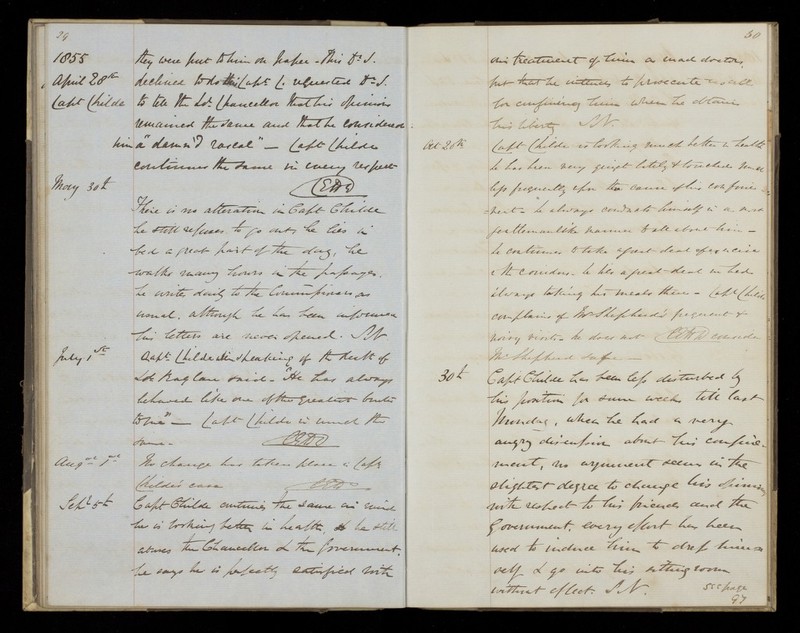 29
1855 they were put to him on paper - This Dr. S.
April 28th declined to do this Capt. C. requested Dr. S.
Capt Childe to tell the Ld. Chancellor that his opinions
remained the same and that he considered
him a "damn'd rascal" - Capt Childe
continues the same in every respect
May 30th There is no alteration in Capt Childe
he still refuses to go out, he lies in
bed a great part of the day, he
walks many hours in the passages.
he writes daily to the Commissioners as
usual, although he has been informed
his letters are never opened. S.N
July 1st Capt. Childe when speaking of the death of
Lord Raglan said - "He has always
behaved like one of the greatest brutes
to me" - Capt Childe is much the
same -
Augst 1st No change has taken place in Capt
Childe's case
Sept 5th Capt Childe continues the same in mind
he is looking better in health, he still
abuses the Chancellor & the Government.
he says he is perfectly satisfied with
30
treatment of him as mad doctors,
but that he intends to prosecute all
for confining him when he obtains
his liberty S.N.
Oct 20th Capt Childe is looking much better in health
he has been very quiet lately & touched much
less frequently upon the cause of his confine
ment - he always conducts himself in a most
gentlemanlike manner to all about him -
he continues to take a great deal of exercise
in the corridors. he lies a great deal in bed
always taking his meals there - Capt Childe
complains of Mr Shepherd's frequent &
noisy visits - he does not consider
Mr Shepherd safe -
30th Capt Childe has been less disturbed by
his position for some weeks till last
Monday, when he had a very
angry discussion about his confine-
ment, no argument seems in the
slightest degree to change his opinion
with respect to his friends and the
Government, every effort has been
used to induce him to dress him
self & go into his sitting room
without effect. S.N.
See page
97